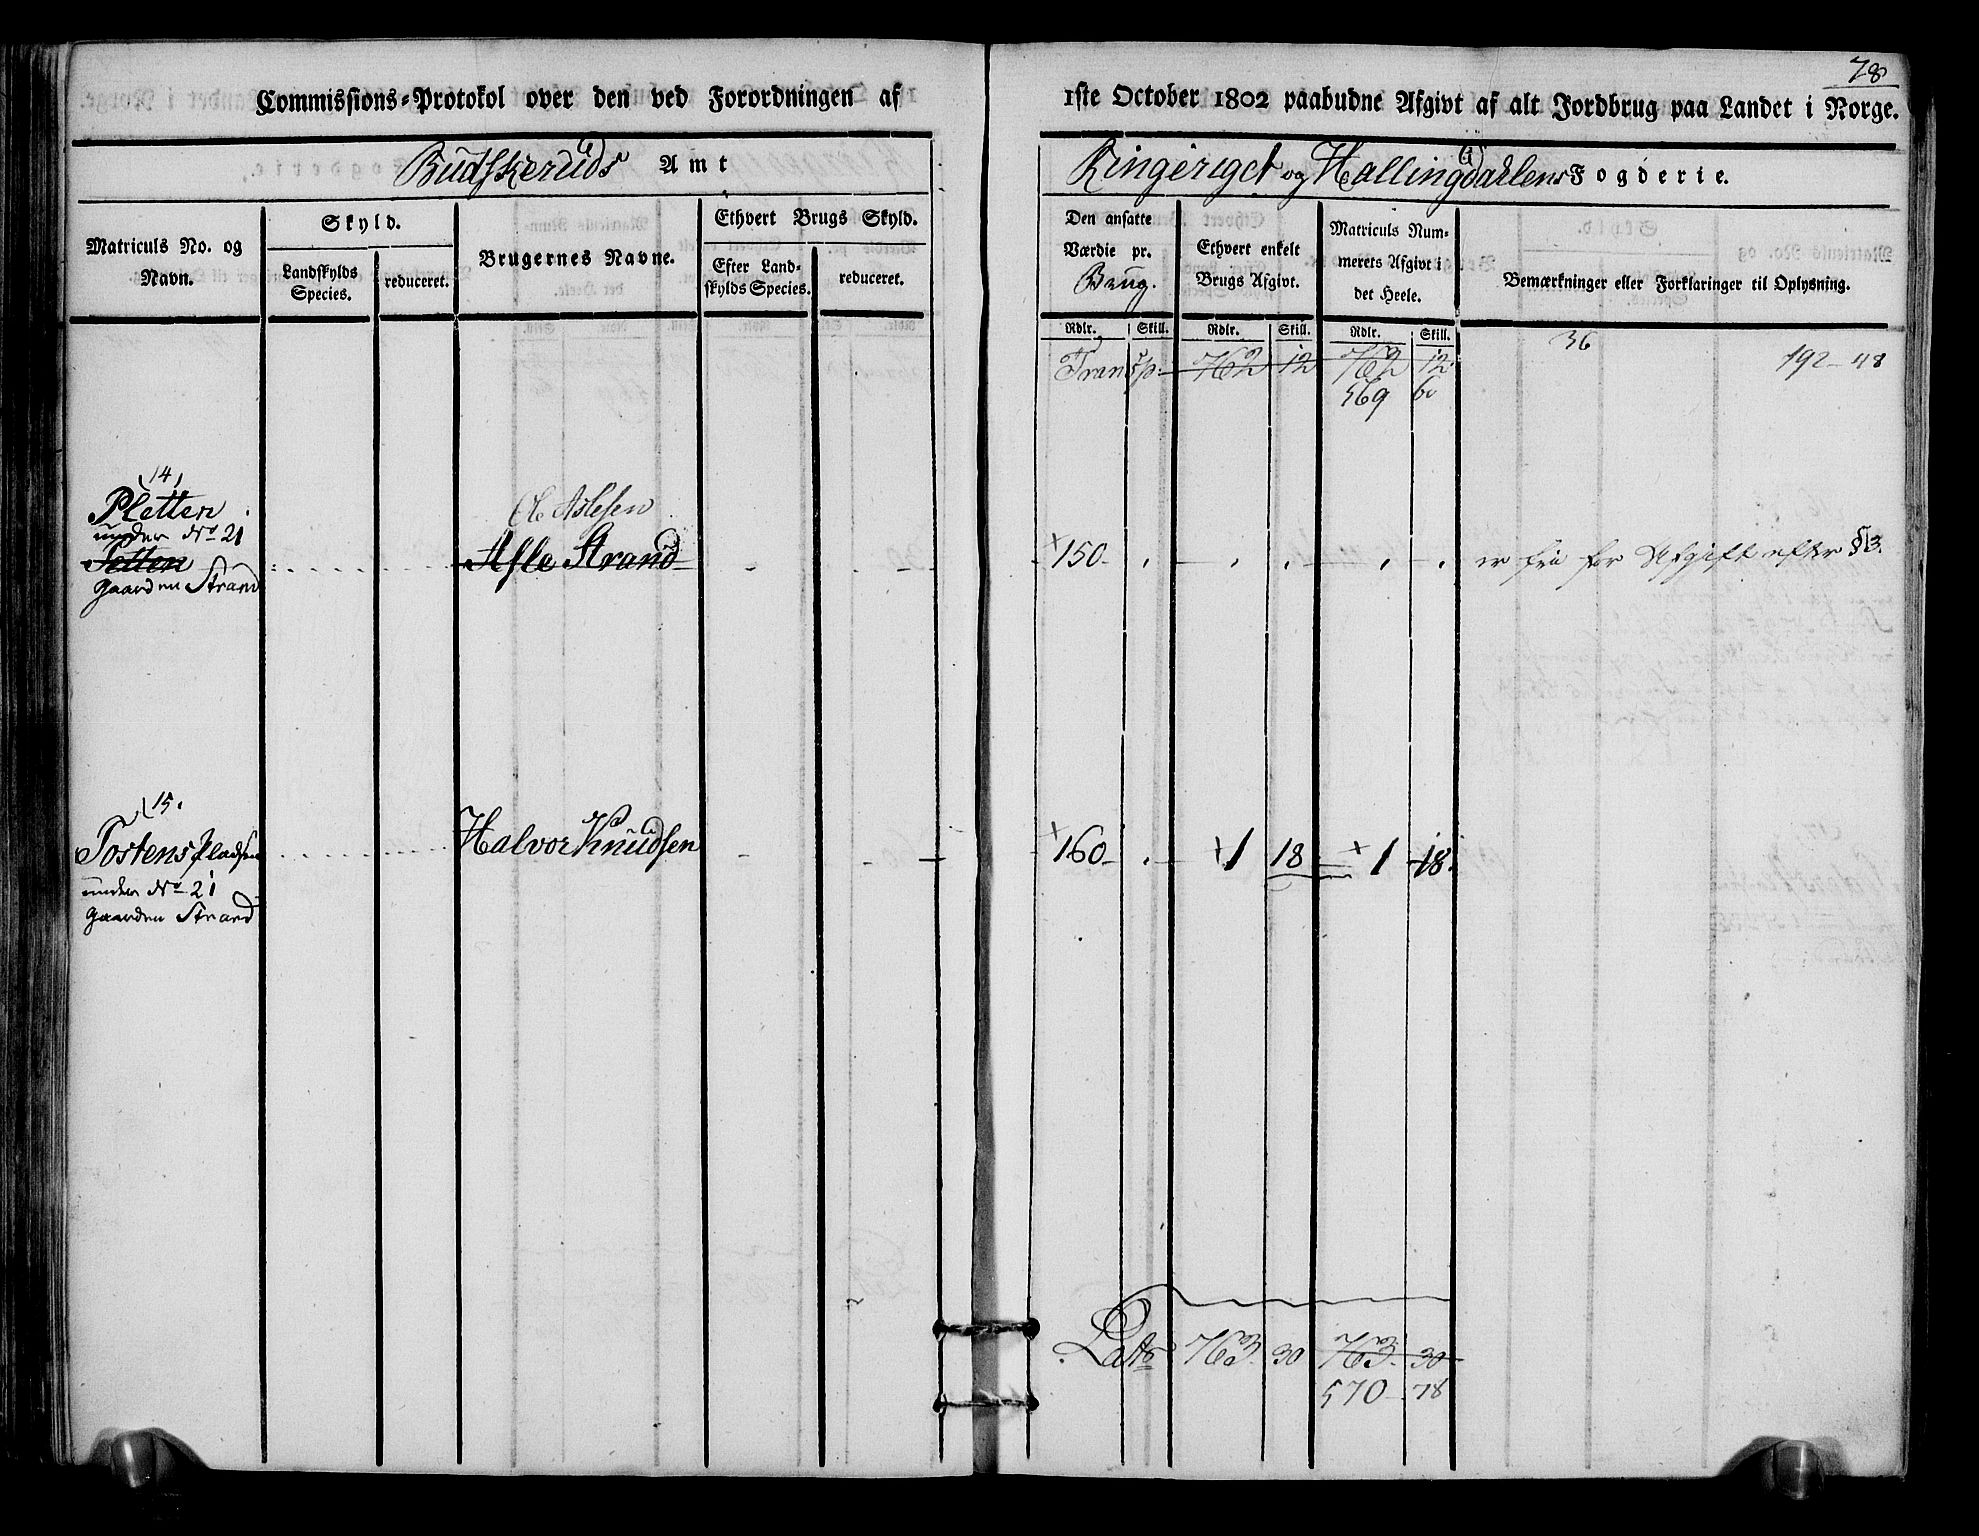 78
Commissions-Protokol over den ved Forordningen af 1ste October 1802 paabudne Afgivt af alt Jordbrug paa Landet i Norge.
Budskeruds Amt
Ringeriget og Hallingdahlens Fogderie.
Matriculs No. og Navn.
Skyld.
Landskylds Species.
reduceret.
Brugernes Navne.
Ethvert Brugs Skyld.
Efter Landskylds Species.
reduceret.
Den ansatte Værdie pr. Brug.
Ethvert enkelt Brugs Afgivt.
Matriculs Nummerets Afgivt i det Heele.
Bemærkninger eller Forklaringer til Oplysning.
Rdlr. Skill. Rdlr. Skill. Rdlr. Skill.
36
Transp: 762 12 762 12 192-48
569 60
14
Pletten
under No 21
Setten
gaarden Strand
Ole Aslesen
Asle Strand
150
er frie for Afgift efter § 3.
15.
Tostens Pladsen
under No 21
gaarden Strand
Halvor Knudsen
160 1 18 1 18.
Latus 763. 30 763. 30
570 78